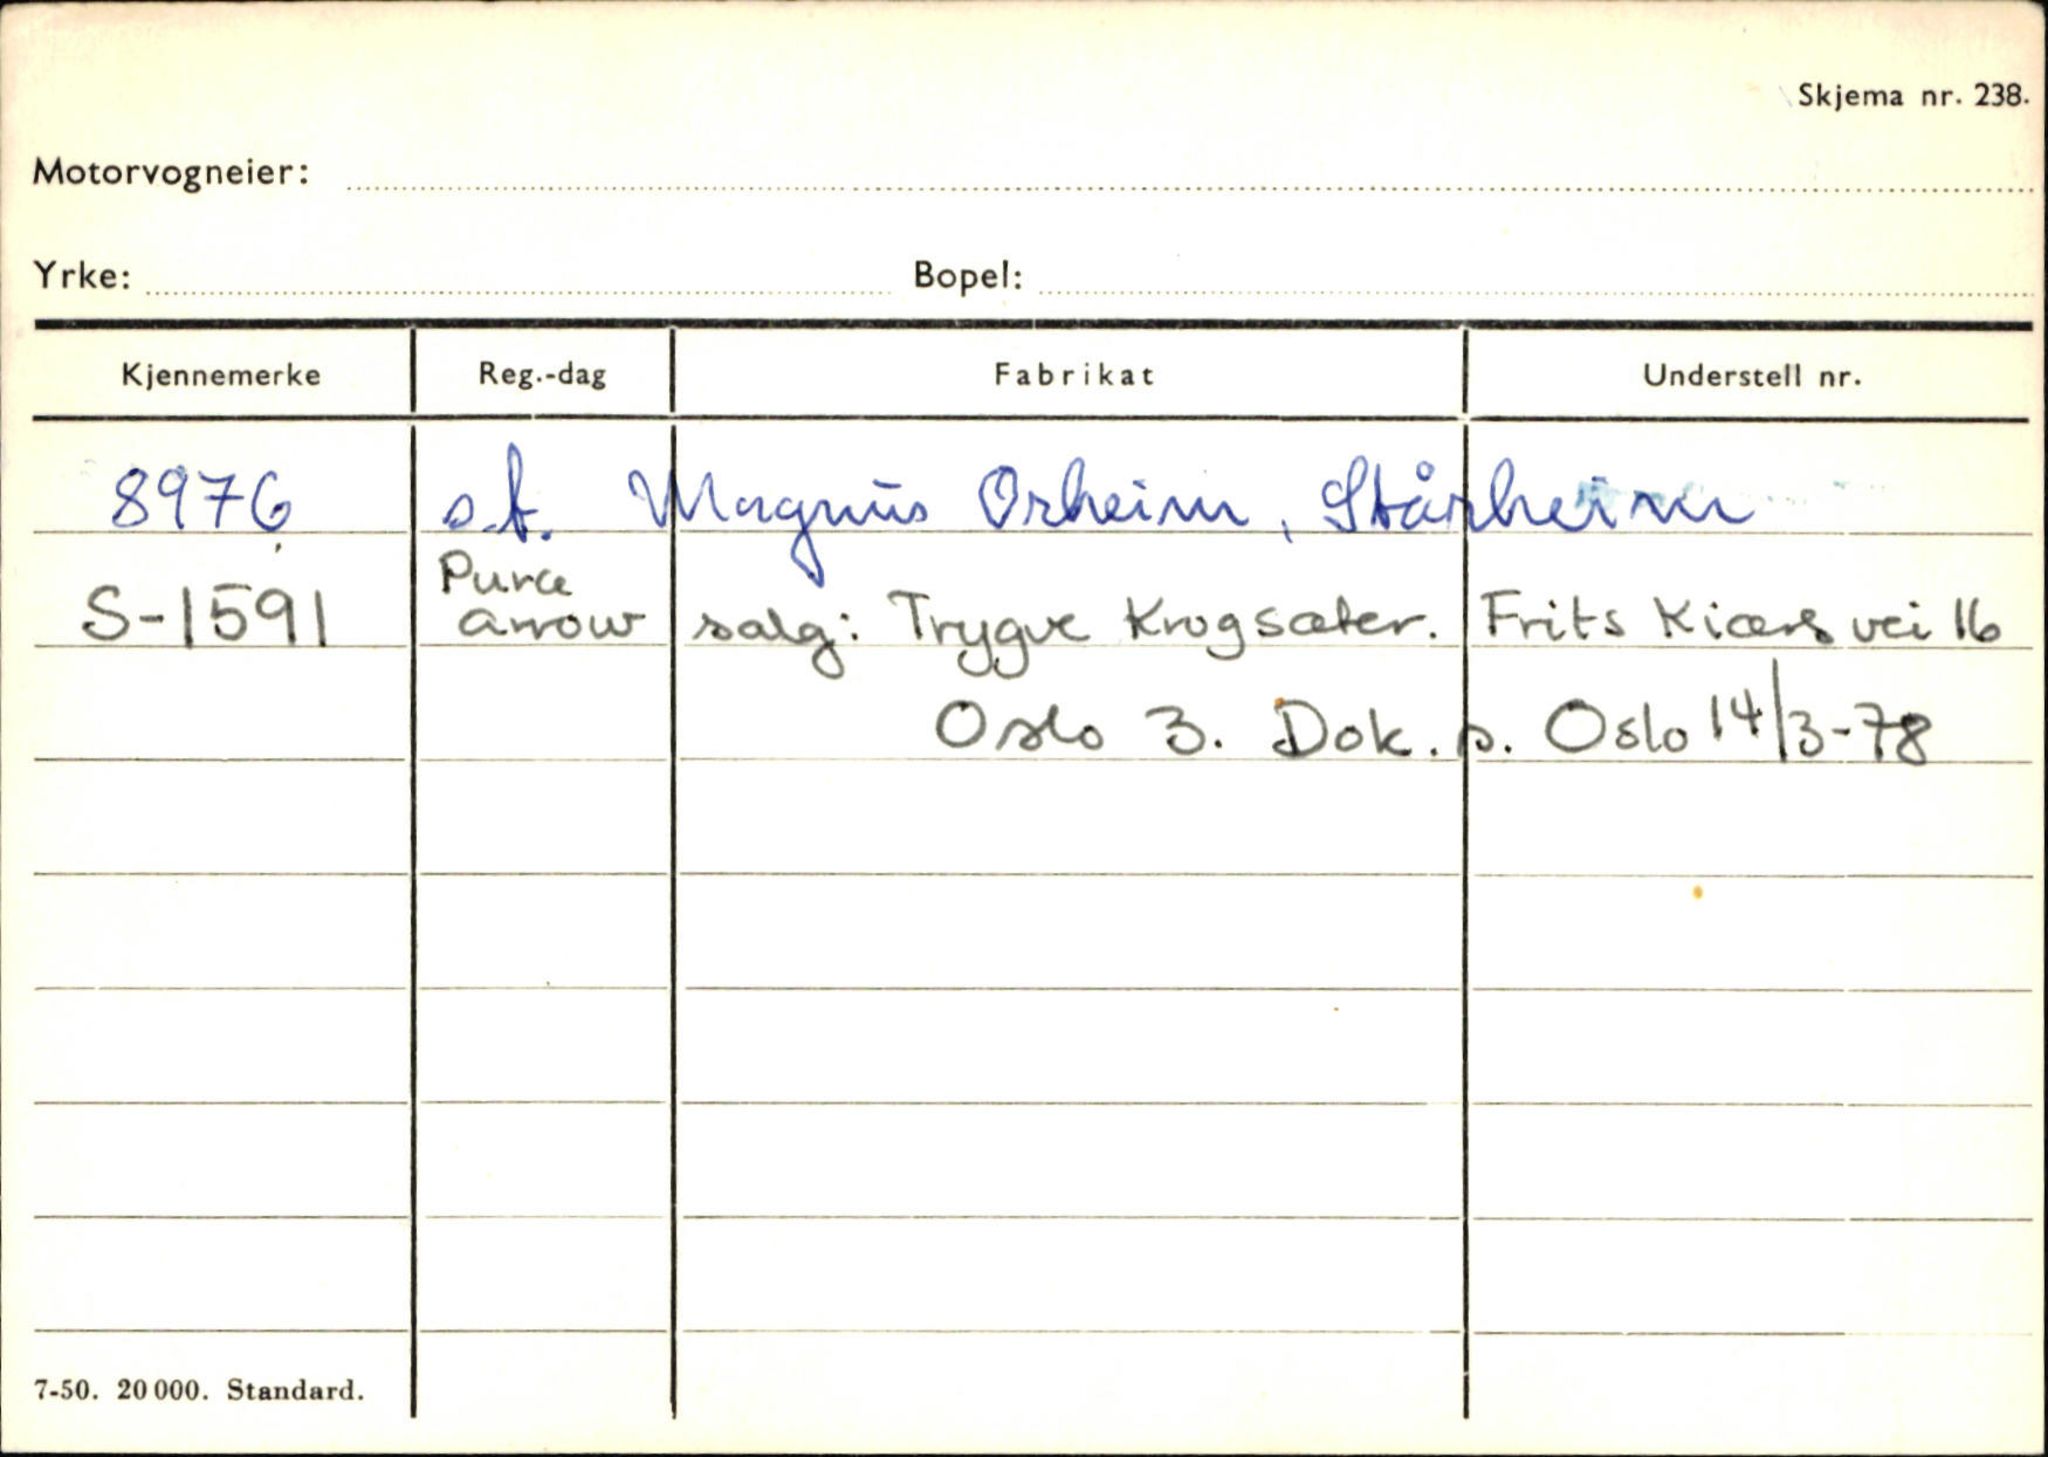 Skjema nr. 238.
Motorvogneier:
Yrke: Bopel:
Kjennemerke Reg.-dag Fabrikat Understell nr.
8976 s.t. Magnus Orheim, Stårheim
Purce
S-1591 arrow salg: Trygve Krogsæter. Frits Kiærs vei 16
Oslo 3. Dok. s. Oslo 14/3-78
7-50. 20 000. Standard.